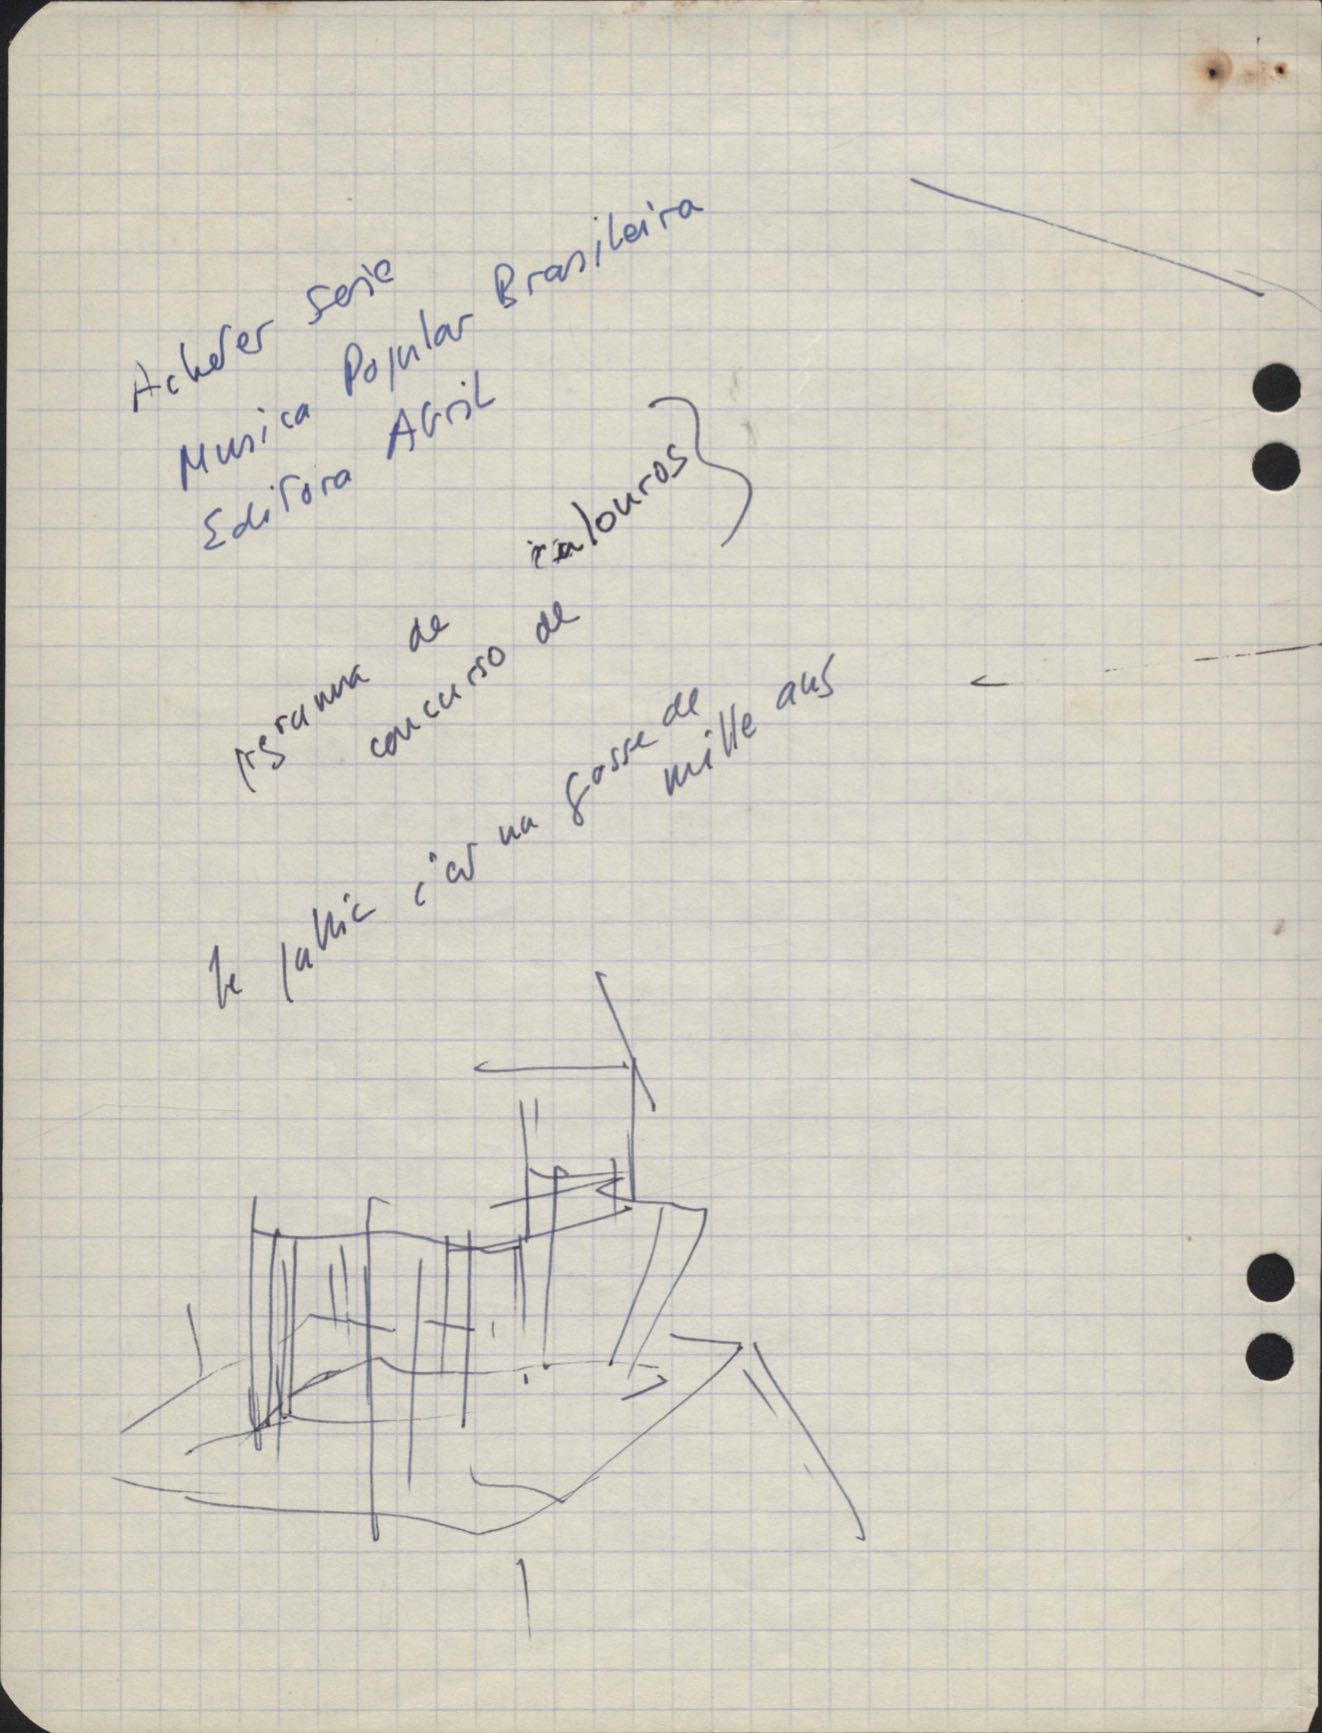 Acheter serie
Musica Popular Brasileira
Editora Abril
programa de calouros
concurso de
le public c'est un gosse de
mille ans